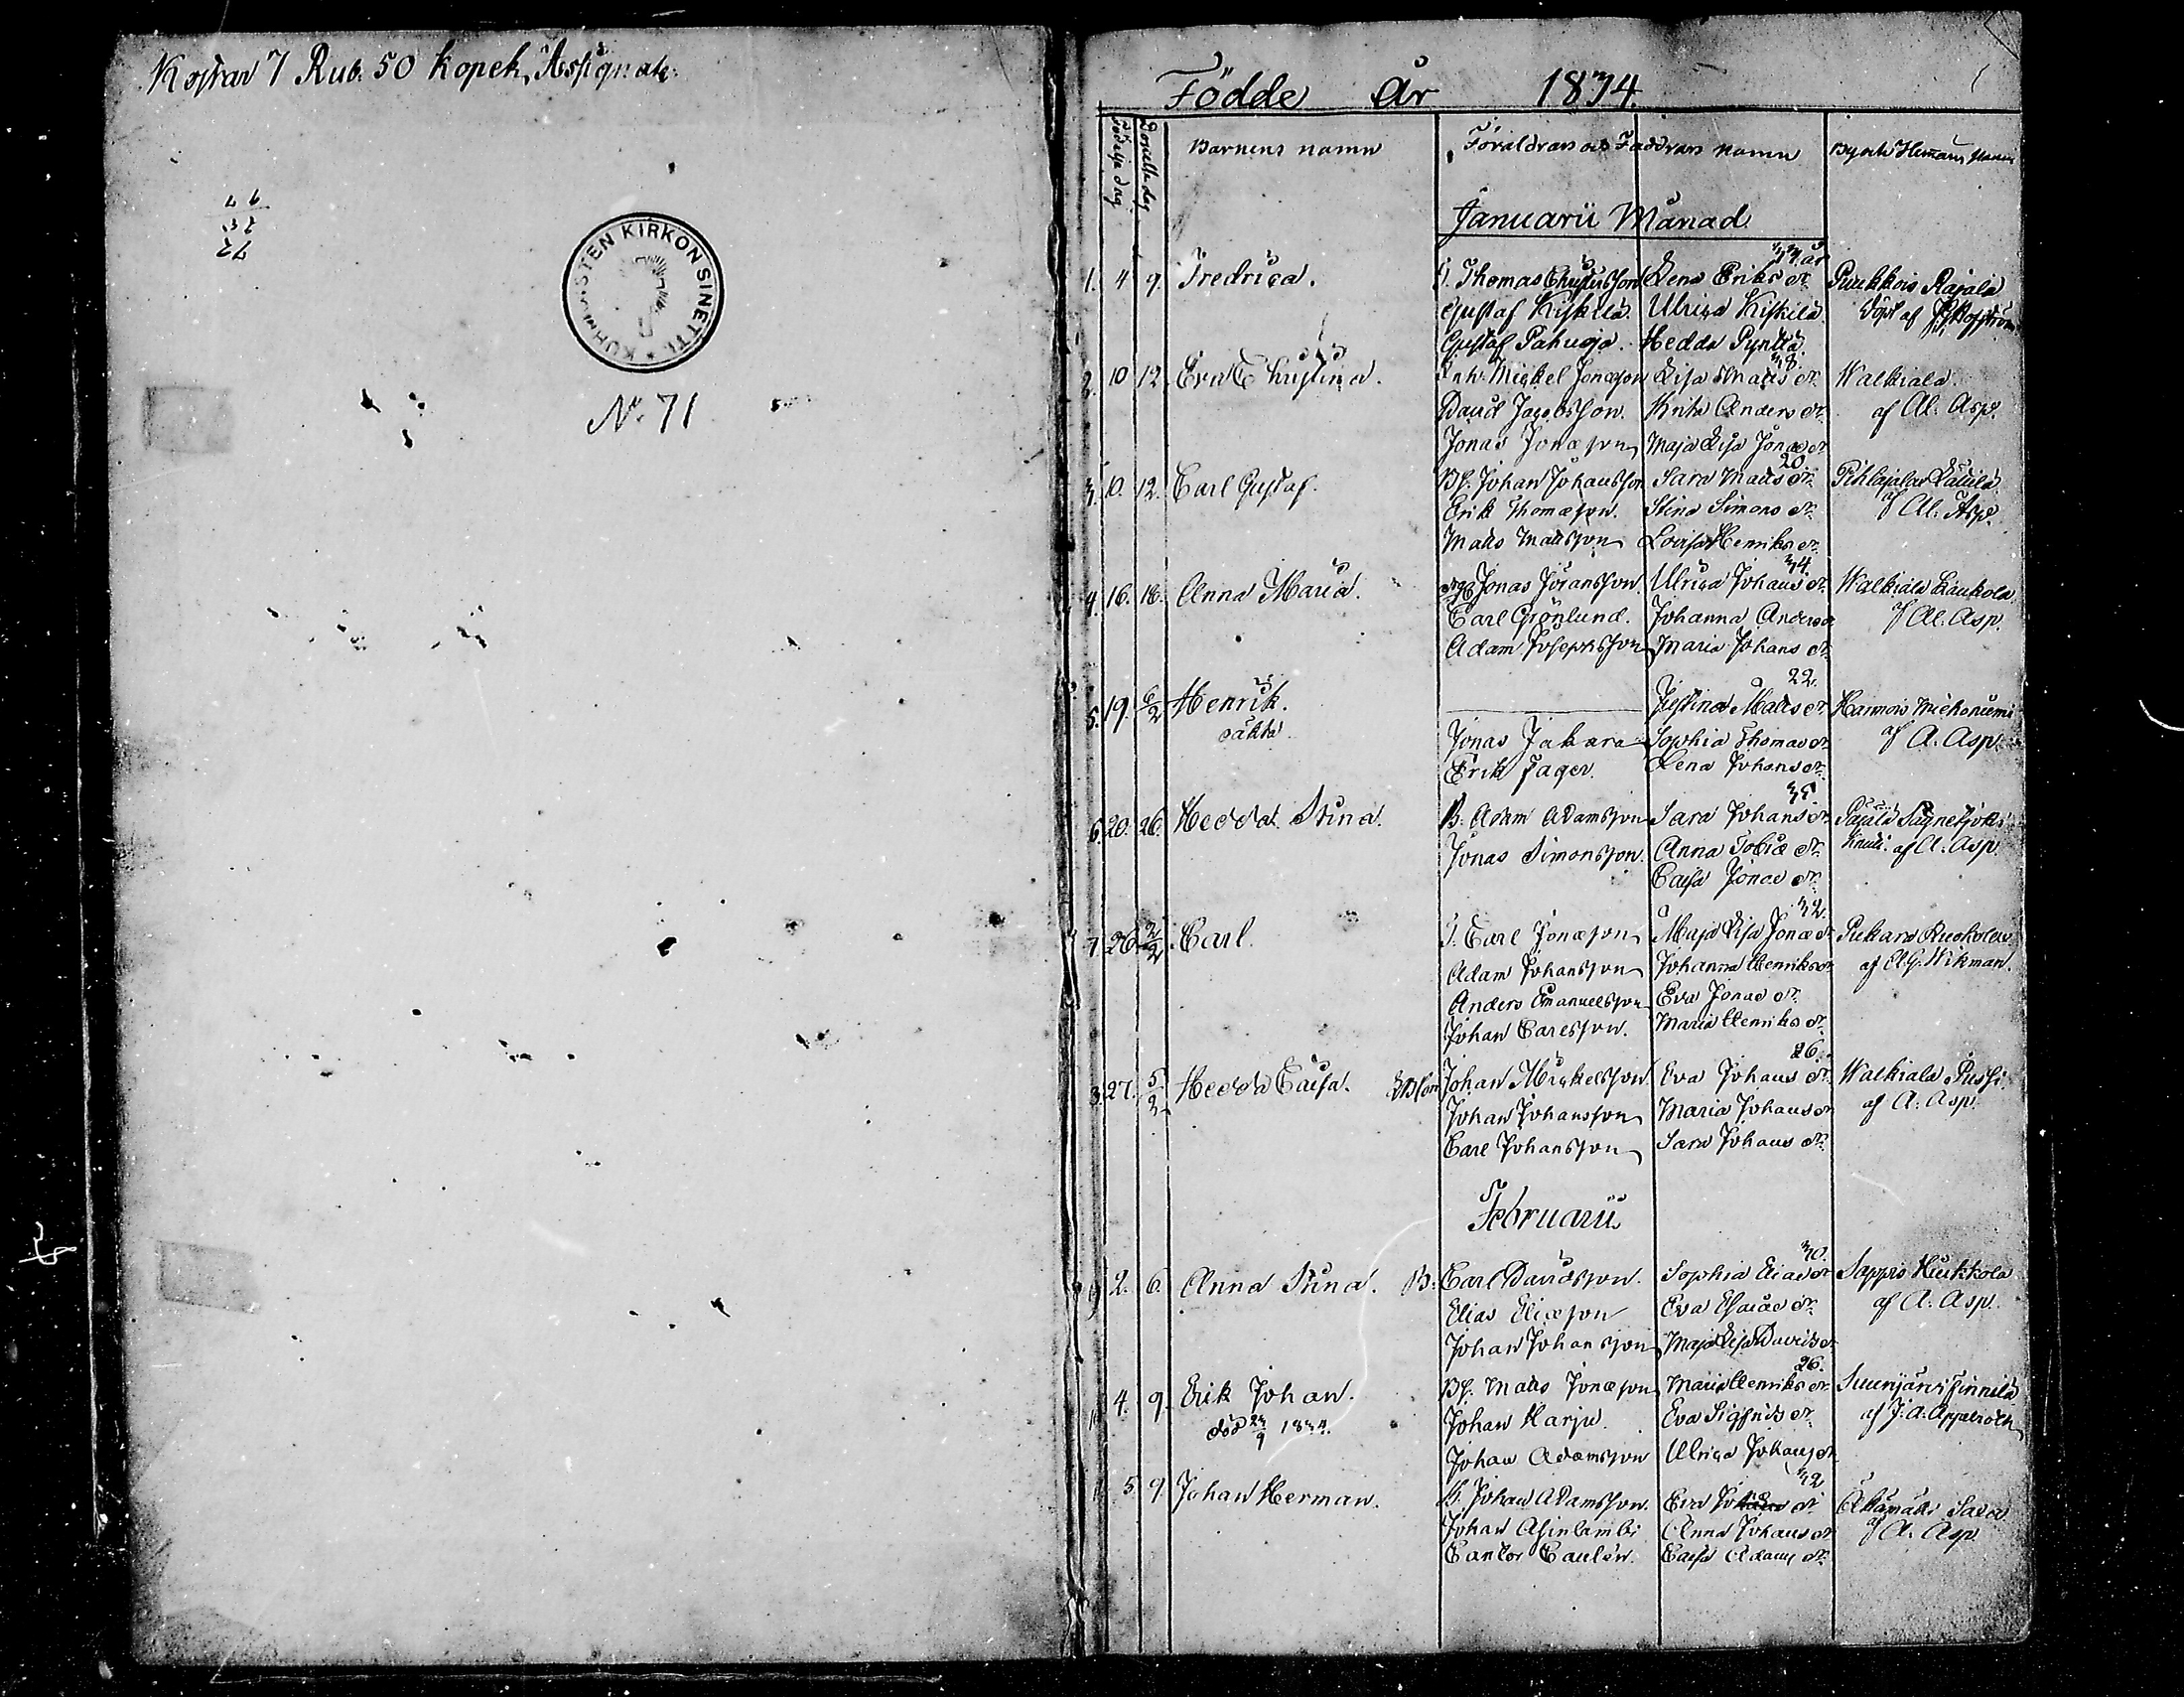 Kostar 7 Rub. 50 Kopek, Assignat.
72
23
97
KUHMOISTEN KIRKON SINETTI
No 71
Födde år 1834.
Födelse dag
Döpelse dag
Barnens namn
Föräldrars och Faddrars namn
Byarnes Hemans Namn
Januarii Månad
33. år
1. 4 9. Fredrica. T. Thomas Christersson Lena Eriks dr. Puukkois Rajala
Gustaf Kiskilä. Ulrica Kiskilä. Döpt af
Gustaf Pahuoja. Hedda Pynttä.
38.
2. 10 12 Eva Christina. Inh. Mickel Jonæson Lisa Matts dr. Walkiala.
David Jacobsson. Krita Anders dr. af Al. Asp.
Jonas Jonæson Maja Lisa Jonæ dr
20.
3. 10. 12. Carl Gustaf. Bs. Johan Johansson Sara Matts dr. Pihlajalax
Erik Thomæson. Stina Simons dr. af Al. Asp.
Matts Mattsson Lovisa Henriks dr.
34.
4. 16. 18. Anna Maria. Jonas Jöransson. Ulrica Johans dr. Walkiala Laukola
Carl Grönlund. Johanna Anders dr af Al. Asp.
Adam Josephsson Maria Johans dr.
22.
5. 19. 6/2 Henrik. Justina Matts dr. Harmois Niekoniemi
oäkta. Jonas Jakara Sophia Thomas dr. af A. Asp.
Erik Jager. Lena Johans dr.
35
6. 20. 26. Hedda Stina. B. Adam Adamsson Sara Johans dr. Päjälä
Jonas Simonsson. Anna Tobiæ dr. af A. Asp.
Caisa Jonæ dr.
32.
7. 26. 2/2 Carl. T. Carl Jonæson Maja Lisa Jonæ dr Pukara Ruokola
Adam Johansson Johanna Henriks dr af A.G. Wikman.
Anders Emanuelsson Eva Jonæ dr.
Johan Carlsson. Maria Henriks dr.
26.
8. 27. 5/2 Hedda Caisa. Johan Mickelsson. Eva Johans dr. Walkiala Pussi.
Johan Johansson Maria Johans dr af A. Asp.
Carl Johansson Sara Johans dr.
Februarii
30.
9 2. 6. Anna Stina. B. Carl Davidsson. Sophia Eliæ dr Sappis Huikkola
Elias Eliæson Eva Esaiæ dr. af A. Asp.
Johan Johansson Maja Lisa Davids dr
26.
4. 9. Erik Johan. Bs. Matts Jonæson Maria Henriks dr. Suurijärvi Finnilä
död 23/9 1834. Johan Harju. Eva Sigfrids dr. af J. A. Appelroth
Johan Adamsson Ulrica Johans dr
32
5 9 Johan Herman. B. Johan Adamsson. Eva dr
Johan Anna Johans dr af A. Asp
Cantor Caulén. Caisa Adams dr.